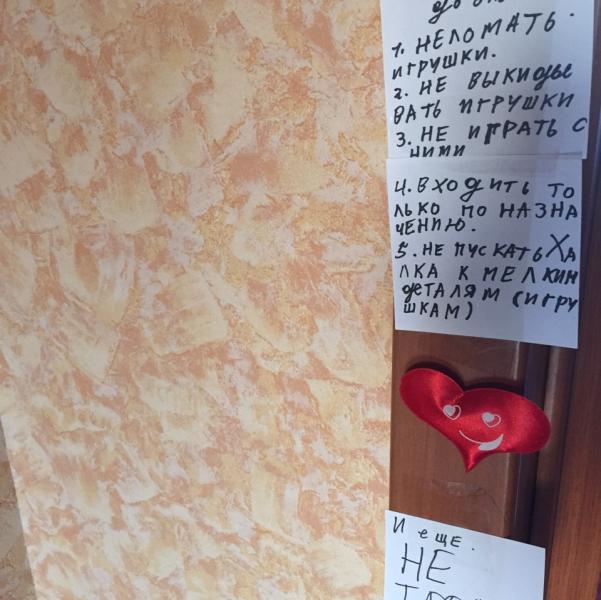 1. НЕЛОМАТЬ.
ИГРУШКИ.
2. НЕ ВЫКИДЫ
ВАТЬ ИГРУШКИ
3. НЕ ИГРАТЬ С
НИМИ
4. ВХОДИТЬ ТО
ЛЬКО ПО НАЗНА
ЧЕНИЮ.
5. НЕ ПУСКАТЬ ХА
ЛКА К МЕЛКИМ
ДЕТАЛЯМ (ИГРУ
ШКАМ)
И еще.
НЕ